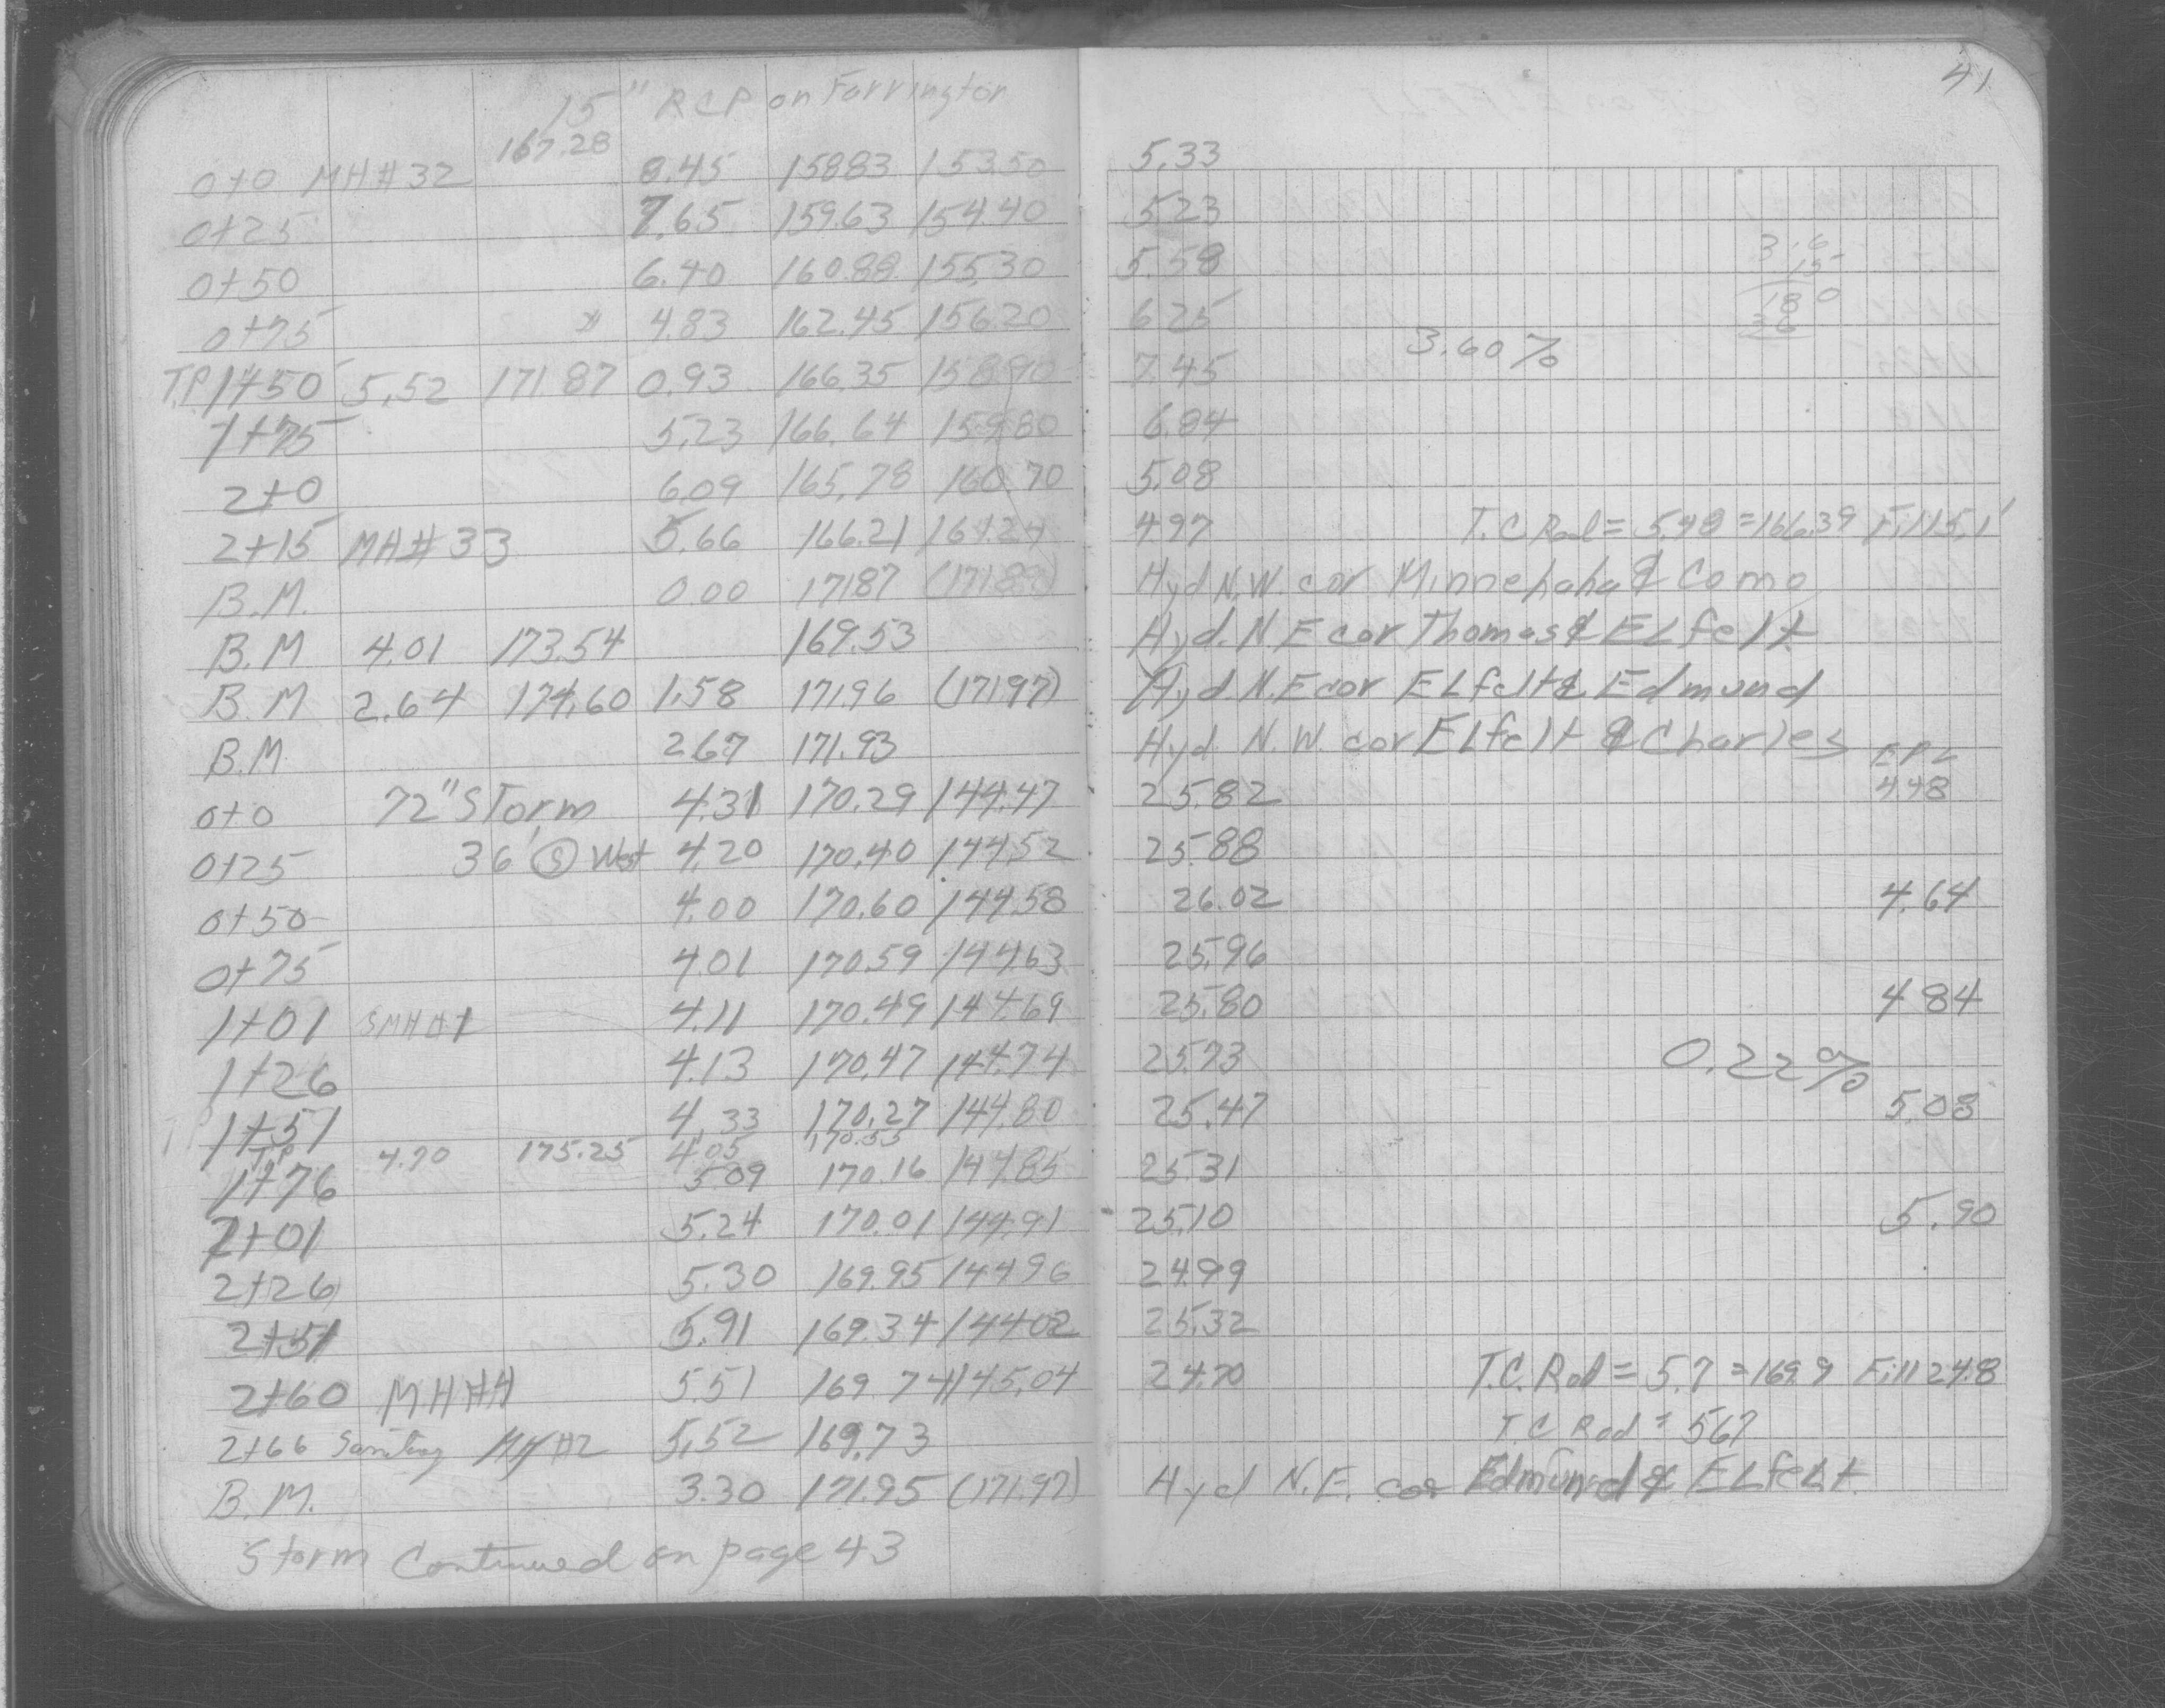 41
15" RCP on Farrington
167.28
0+0 MH#32 8.45 158.83 153.50 5.33
0+25 7.65 159.63 154.40 5.23
0+50 6.40 160.88 155.30 5.58
0+75 4.83 162.45 156.20 6.25
3.6
15
180
36
3.60%
T.P. 1+50 5.52 171.87 0.93 166.35 158.90 7.45
1+75 5.23 166.64 159.80 6.84
2+0 6.09 165.78 160.70 5.08
2+15 MH#33 5.66 166.21 161.24 4.97 T.C Rod = 5.48 = 166.39 Fill 5.1'
B.M. 0.00 171.87 (171.88) Hyd N.W. cor Minnehaha & Como
B.M 4.01 173.54 169.53 Hyd. N.E cor Thomas & ELfelt
B.M 2.64 174.60 1.58 171.96 (171.97) Hyd N.E cor ELfelt & Edmund
B.M 2.67 171.93 Hyd. N.W. cor ELfelt & Charles
EPL
0+0 72" Storm 4.31 170.29 144.47 25.82 4.48
0+25 36' (S) West 4.20 170.40 144.52 25.88
0+50 4.00 170.60 144.58 26.02 4.64
0+75 4.01 170.59 144.63 25.96
1+01 SMH#1 4.11 170.49 144.69 25.80 4.84
1+26 4.13 170.47 144.74 25.73 0.22%
1+51 4.33 170.27 144.80 25.47 5.08
TP 4.70 175.25 4.05 170.55
1+76 5.09 170.16 144.85 25.31
2+01 5.24 170.01 144.91 25.10 5.90
2+26 5.30 169.95 144.96 24.99
2+51 5.91 169.34 144.02 25.32
2+60 MH#4 5.51 169.74 145.04 24.70 T.C. Rod = 5.7 = 169.9 Fill 24.8
2+66 Sanitary MH#2 5.52 169.73 T.C Rod = 5.67
B.M. 3.30 171.95 (171.97) Hyd N.E. cor Edmund & ELfeLt.
Storm Continued on page 43